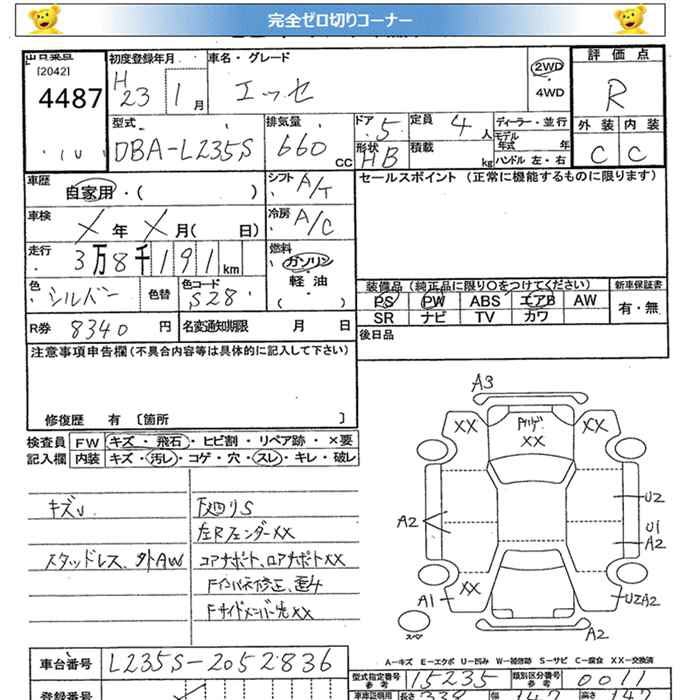 完全ゼロ切りコーナー
出品票
[2042]
4487
初度登録年月
H 23 1月
車名・グレード
エッセ
2WD
・
4WD
評価点
R
外装 内装
C C
型式
DBA-L235S
排気量
660 cc
ドア
5
形状
HB
定員
4 人
積載
kg
ディーラー・並行
モデル年式 年
ハンドル 左・右
車歴
自家用・( )
シフト
A/T
セールスポイント (正常に機能するものに限ります)
車検
X 年 X 月( 日)
冷房
A/C
走行
3万8千191km
燃料
ガソリン
・
軽・油
・
( )
色
シルバー
色替
色コード
S28
装備品 (純正品に限り〇をつけてください)
新車保証書
PS PW ABS エアB AW
SR ナビ TV カワ
有・無
R券 8340 円
名変通知期限 月 日
後日品
注意事項申告欄(不具合内容等は具体的に記入して下さい)
修復歴 有 〔箇所 〕
検査員
記入欄
FW キズ・飛石・ヒビ割・リペア跡・×要
内装 キズ・汚レ・コゲ・穴・スレ・キレ・破レ
キズU
下廻りS
左Rフェンダー XX
スタッドレス、外AW
コアサポート、ロアサポートXX
Fインパネ修正、歪4
Fサイドメンバー先XX
A3
XX
XX
XX
A2
U2
U1
A2
XX
A1
U2A2
A2
スペア
A-キズ E-エクボ U-凹み W-補修跡 S-サビ C-腐食 XX-交換済
車台番号 L235S-2052836
型式指定番号
参考
15235
類別区分番号
参考
0011
登録番号
車庫証明用
長さ 339 幅 147 高さ 147